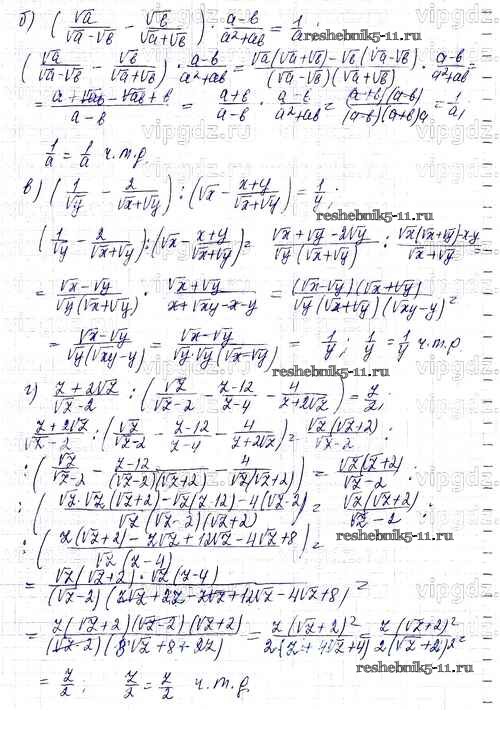 б) (√a/(√a-√b) - √b/(√a+√b)) · (a-b)/(a²+ab) = 1/a;
(√a/(√a-√b) - √b/(√a+√b)) · (a-b)/(a²+ab) = (√a(√a+√b)-√b(√a-√b))/((√a-√b)(√a+√b)) · (a-b)/(a²+ab) =
= (a+√ab-√ab+b)/(a-b) = (a+b)/(a-b) · (a-b)/(a²+ab) = ((a+b)(a-b))/((a-b)(a+b)a) = 1/a,
1/a = 1/a ч.т.д.
в) (1/√y - 2/(√x+√y)) : (√x - (x+y)/(√x+√y)) = 1/y;
reshebnik5-11.ru
(1/√y - 2/(√x+√y)) : (√x - (x+y)/(√x+√y)) = (√x+√y-2√y)/(√y(√x+√y)) : (√x(√x+√y)-x-y)/(√x+√y) =
= (√x-√y)/(√y(√x+√y)) · (√x+√y)/(x+√xy-x-y) = ((√x-√y)(√x+√y))/(√y(√x+√y)(√xy-y)) =
= (√x-√y)/(√y(√xy-y)) = (√x-√y)/(√y·√y(√x-√y)) = 1/y; 1/y = 1/y ч.т.д
reshebnik5-11.ru
г) (z+2√z)/(√z-2) : (√z/(√z-2) - (z-12)/(z-4) - 4/(z+2√z)) = z/2;
(z+2√z)/(√z-2) : (√z/(√z-2) - (z-12)/(z-4) - 4/(z+2√z)) = √z(√z+2)/(√z-2) :
: (√z/(√z-2) - (z-12)/((√z-2)(√z+2)) - 4/(√z(√z+2))) = √z(√z+2)/(√z-2) :
: ((√z·√z(√z+2)-√z(z-12)-4(√z-2))/(√z(√z-2)(√z+2))) = √z(√z+2)/(√z-2) :
: ((z(√z+2)-z√z+12√z-4√z+8)/(√z(z-4))) =
reshebnik5-11.ru
= (√z(√z+2)·√z(z-4))/((√z-2)(z√z+2z-z√z+12√z-4√z+8)) =
= (z(√z+2)(√z-2)(√z+2))/((√z-2)(8√z+8+2z)) = z(√z+2)²/(2(z+4√z+4)) = z(√z+2)²/(2(√z+2)²) =
= z/2; z/2 = z/2 ч.т.д.
reshebnik5-11.ru